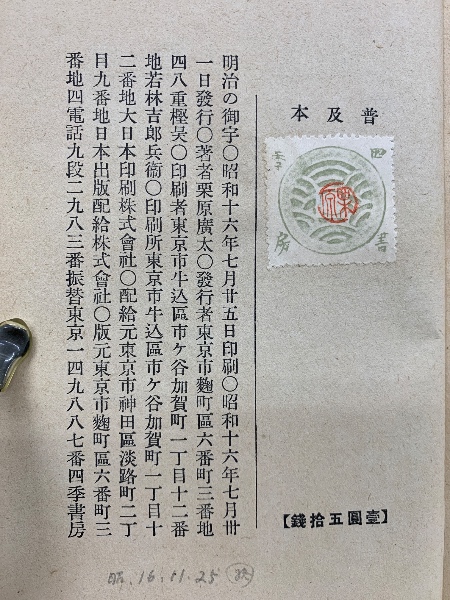 普及本
四季書房
栗原
【壹圓五拾錢】
明治の御宇〇昭和十六年七月廿五日印刷〇昭和十六年七月卅
一日發行〇著者栗原廣太〇發行者東京市麴町區六番町三番地
四八重樫昊〇印刷者東京市牛込區市ケ谷加賀町一丁目十二番
地若林吉郎兵衞〇印刷所東京市牛込區市ケ谷加賀町一丁目十
二番地大日本印刷株式會社〇配給元東京市神田區淡路町二丁
目九番地日本出版配給株式會社〇版元東京市麴町區六番町三
番地四電話九段二九八三番振替東京一四九八八七番四季書房
昭.16.11.25